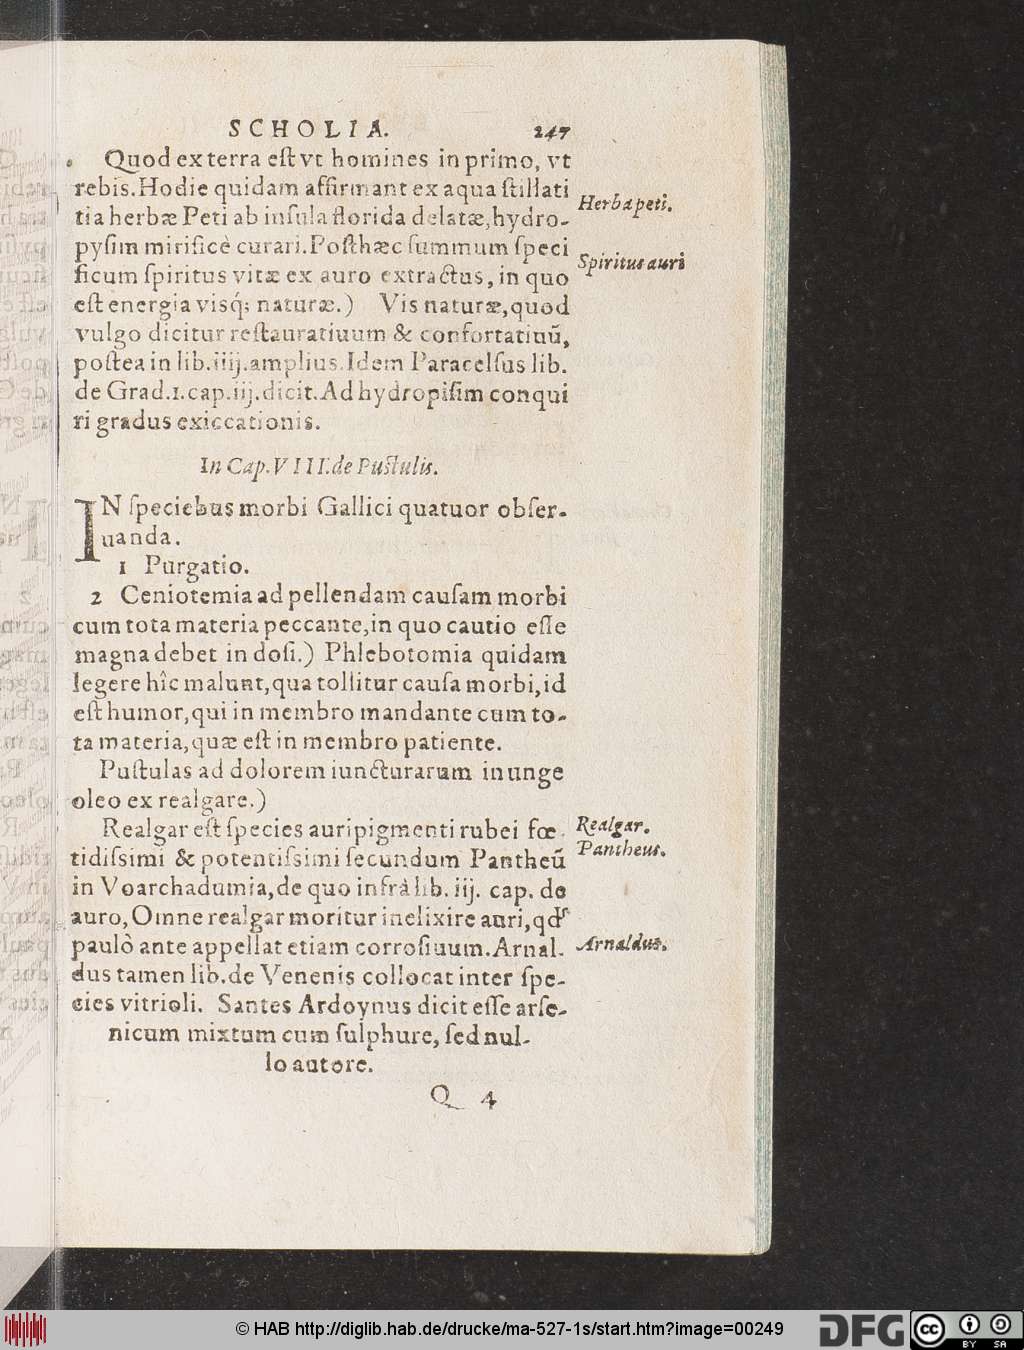 SCHOLIA. 247
Quod ex terra est vt homines in primo, vt
rebis. Hodie quidam affirmant ex aqua stillati
tia herbæ Peti ab insula florida delatæ, hydro-
pysim mirificè curari. Posthæc summum speci
ficum spiritus vitæ ex auro extractus, in quo
est energia visq́; naturæ.) Vis naturæ, quod
vulgo dicitur restauratiuum & confortatiuū,
postea in lib. iiij. amplius. Idem Paracelsus lib.
de Grad. 1. cap. iij. dicit. Ad hydropisim conqui
ri gradus exiccationis.
Herba peti.
Spiritus auri
In Cap. VIII. de Pustulis.
IN speciebus morbi Gallici quatuor obser-
uanda.
1 Purgatio.
2 Ceniotemia ad pellendam causam morbi
cum tota materia peccante, in quo cautio esse
magna debet in dosi.) Phlebotomia quidam
legere hîc malunt, qua tollitur causa morbi, id
est humor, qui in membro mandante cum to-
ta materia, quæ est in membro patiente.
Pustulas ad dolorem iuncturarum inunge
oleo ex realgare.)
Realgar est species auripigmenti rubei fœ-
tidissimi & potentissimi secundum Pantheū
in Voarchadumia, de quo infrà lib. iij. cap. de
auro, Omne realgar moritur in elixire auri, qd
paulò ante appellat etiam corrosiuum. Arnal-
dus tamen lib. de Venenis collocat inter spe-
cies vitrioli. Santes Ardoynus dicit esse arse-
nicum mixtum cum sulphure, sed nul-
lo autore.
Realgar.
Pantheus.
Arnaldus.
Q 4
© HAB http://diglib.hab.de/drucke/ma-527-1s/start.htm?image=00249
DFG
cc BY SA